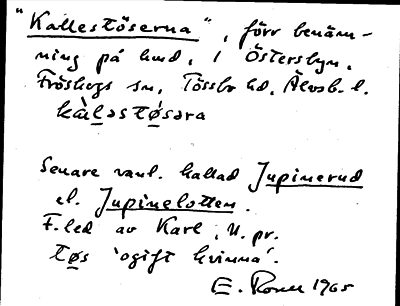 "Kallestöserna", förr benäm-
ning på hmd. i Östersbyn,
Fröskogs sn, Tössbo hd, Älvsb. l.
kàḷəstø̣səra
Senare vanl. kallad Jupinerud
el. Jupinelotten.
F. led av Karl, U. pr.
tøs 'ogift kvinna'.
E. 1965